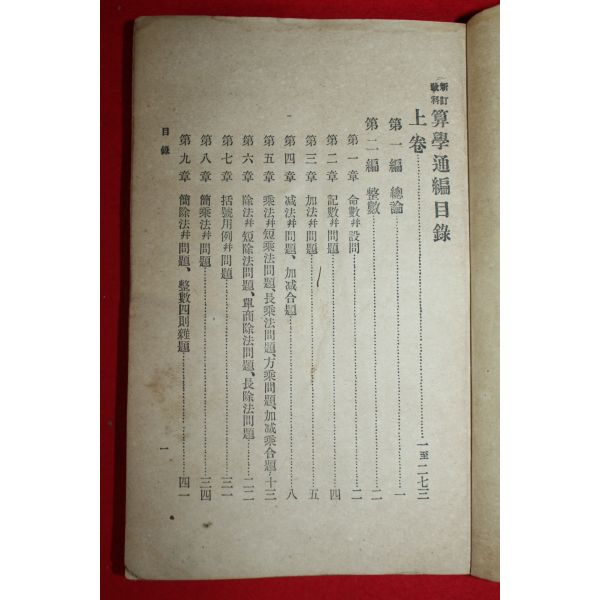 新訂
敎科
算學通編目錄
上卷……一至二七三
第一編 總論……一
第二編 整數……二
第一章 命數幷設問……二
第二章 記數幷問題……四
第三章 加法幷問題……五
第四章 減法幷問題、加減合題……八
第五章 乘法幷短乘法問題、長乘法問題、方乘問題、加減乘合題…十三
第六章 除法幷短除法問題、單商除法問題、長除法問題……二二
第七章 括號用例幷問題……三一
第八章 簡乘法幷問題……三四
第九章 簡除法幷問題、整數四則雜題……四一
目錄
一